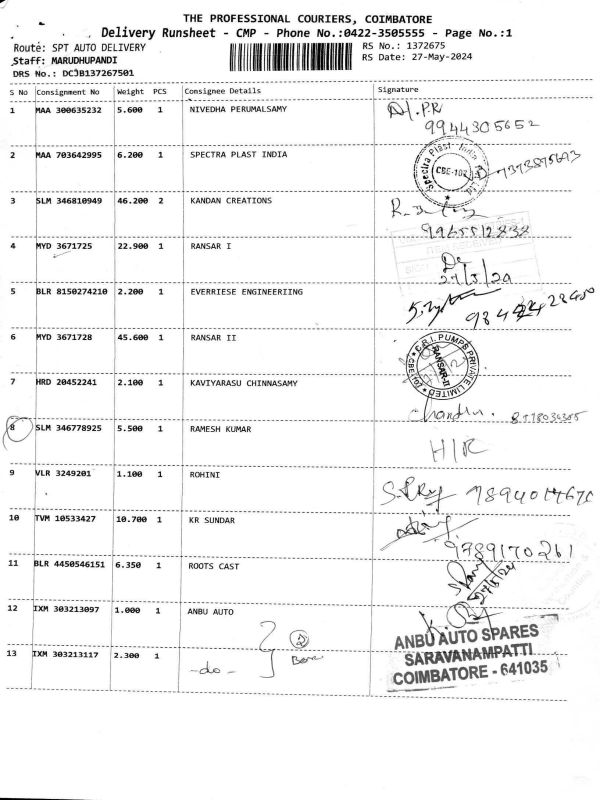 THE PROFESSIONAL COURIERS, COIMBATORE
Delivery Runsheet - CMP - Phone No.:0422-3505555 - Page No.:1
Route: SPT AUTO DELIVERY
RS No.: 1372675
Staff: MARUDHUPANDI
RS Date: 27-May-2024
DRS No.: DCJB137267501
S No Consignment No Weight PCS Consignee Details Signature
1 MAA 300635232 5.600 1 NIVEDHA PERUMALSAMY
9944305652
2 MAA 703642995 6.200 1 SPECTRA PLAST INDIA
Spectra Plast India
CBE-107
3 SLM 346810949 46.200 2 KANDAN CREATIONS
4 MYD 3671725 22.900 1 RANSAR I
5 BLR 8150274210 2.200 1 EVERRIESE ENGINEERIING
6 MYD 3671728 45.600 1 RANSAR II
C.R.I. PUMPS PRIVATE LIMITED
RANSAR-II
7 HRD 20452241 2.100 1 KAVIYARASU CHINNASAMY
8 SLM 346778925 5.500 1 RAMESH KUMAR
9 VLR 3249201 1.100 1 ROHINI
10 TVM 10533427 10.700 1 KR SUNDAR
9789170261
11 BLR 4450546151 6.350 1 ROOTS CAST
12 IXM 303213097 1.000 1 ANBU AUTO
ANBU AUTO SPARES
SARAVANAMPATTI
COIMBATORE - 641035
13 IXM 303213117 2.300 1 -do-
2